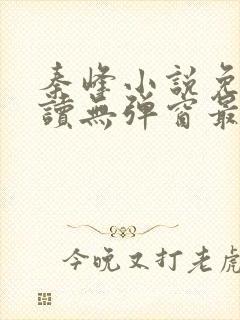 秦峰小説免
讀無彈窗最
今晚又打老虎